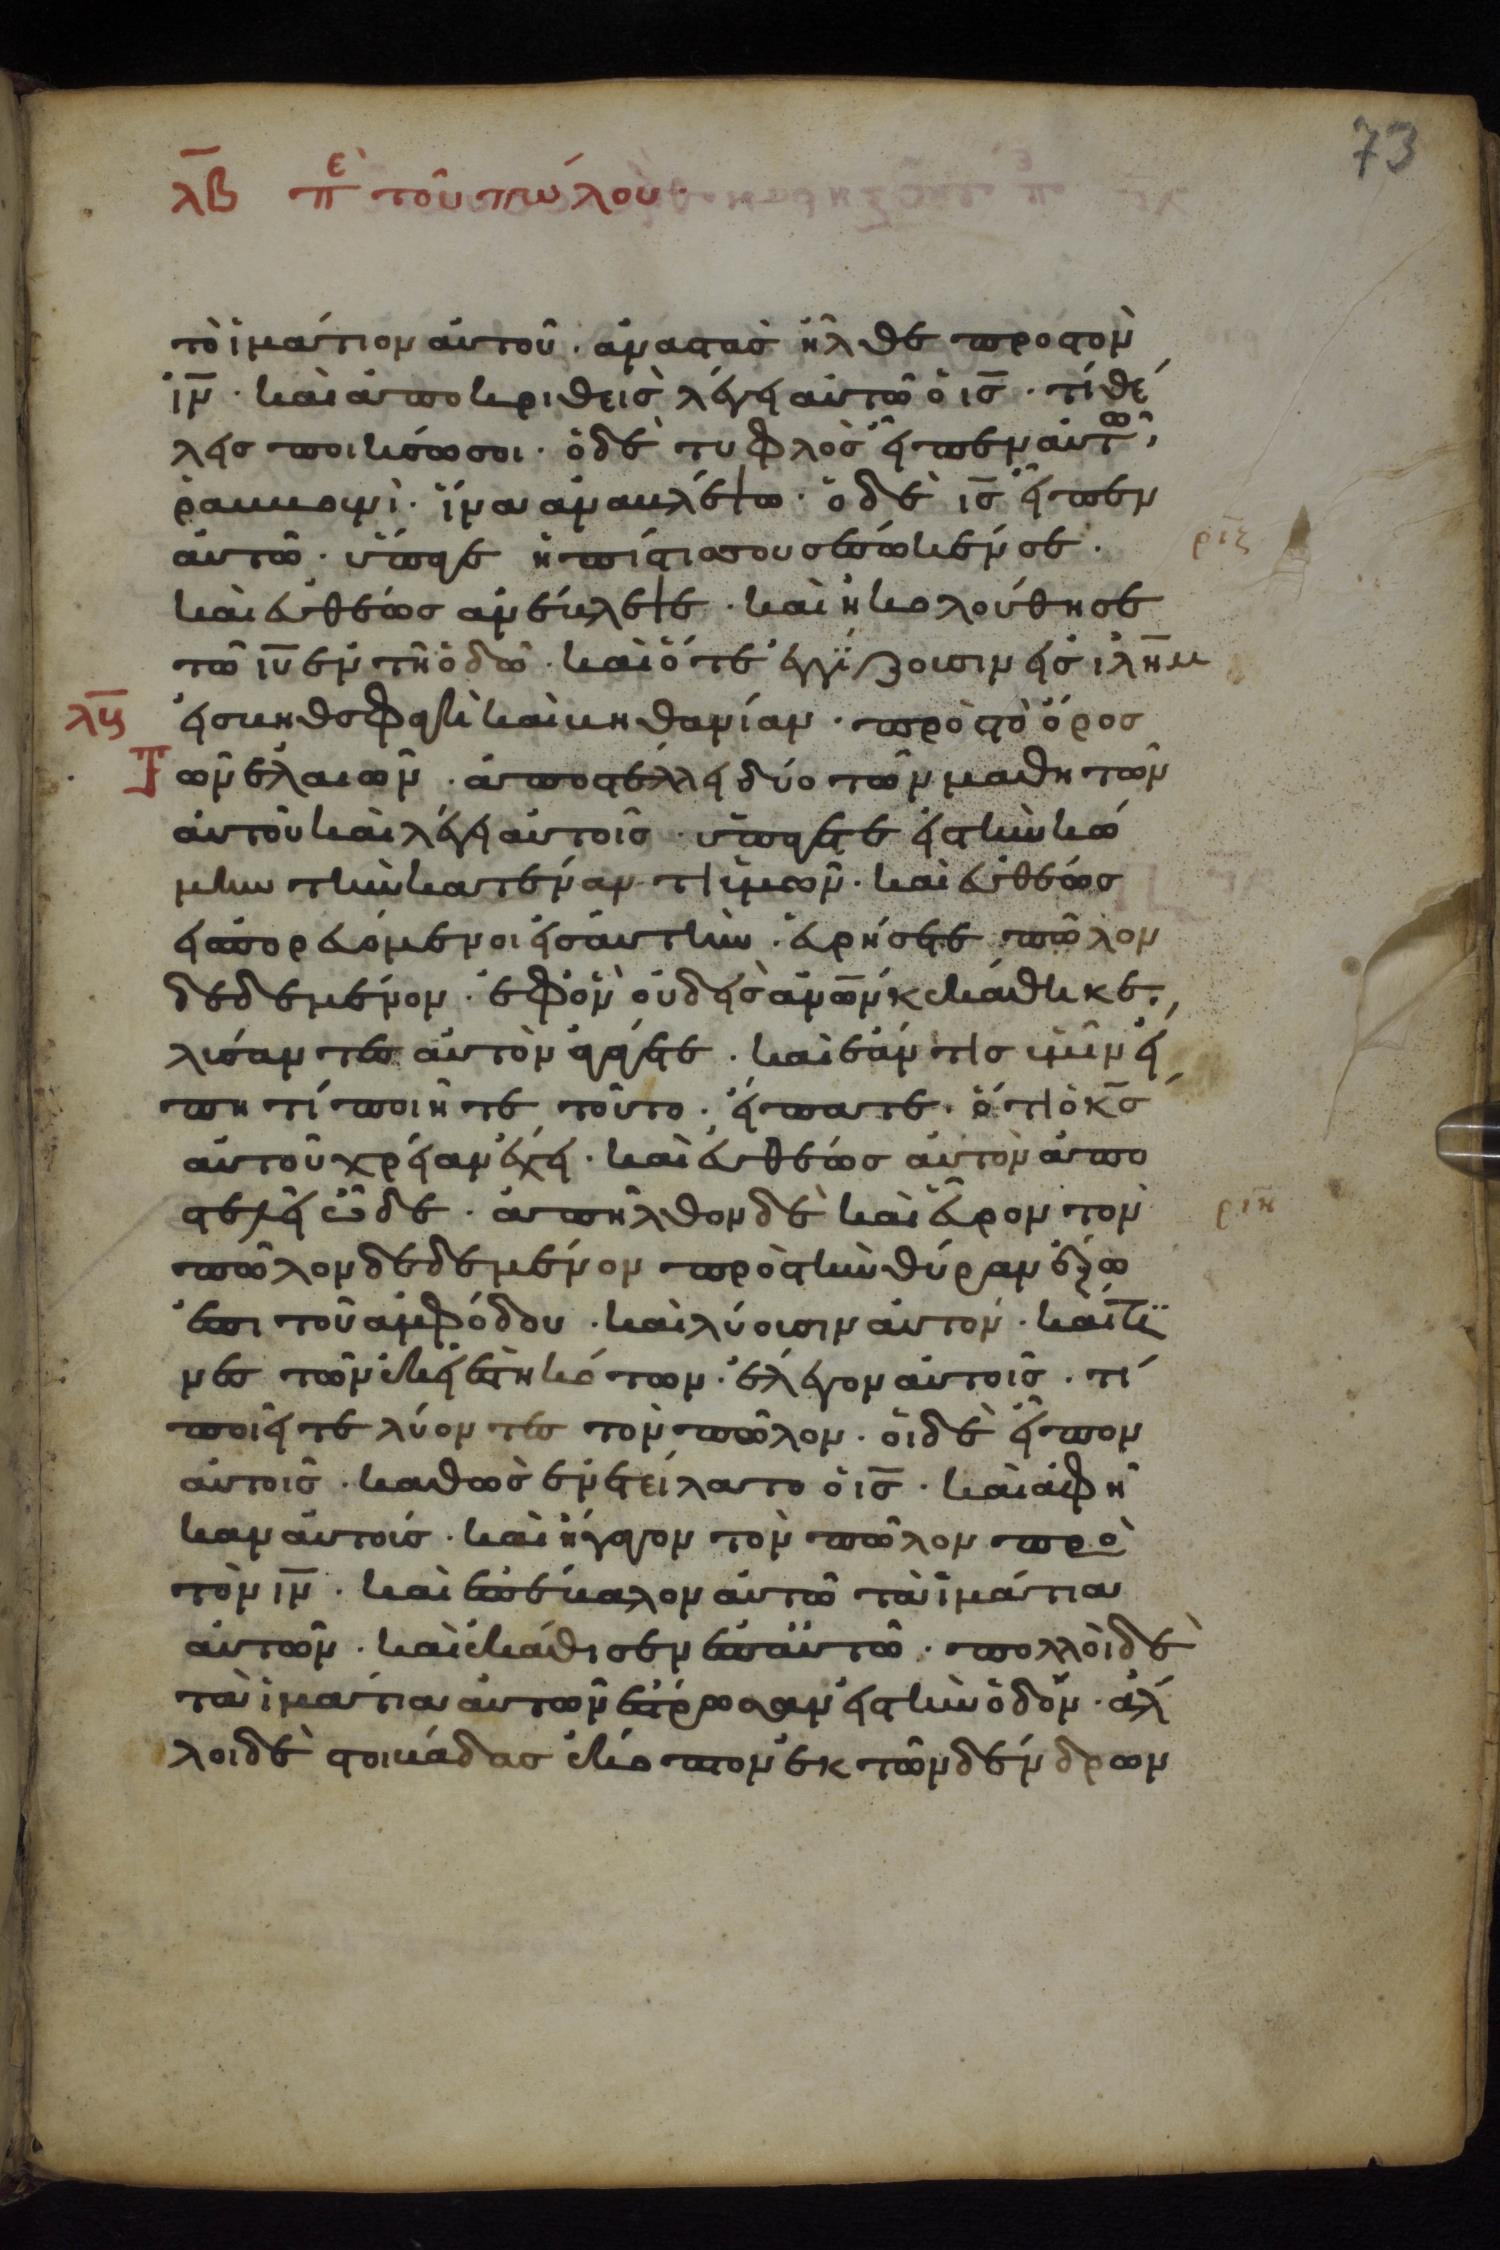 73
λβ πε τοῦ πώλου.
τὸ ἱμάτιον αὐτοῦ. ἀναστὰς ἦλθε πρὸς τὸν
ιν. καὶ ἀποκριθεὶς λέγει αὐτῶ ὁ ις. τί θέ
λεις ποιήσω σοι. ὁ δὲ τυφλὸς εἶπεν αὐτῶ,
ραββουνὶ. ἵνα ἀναβλέψω. ὁ δὲ ις εἶπεν
αὐτῶ. ὕπαγε ἡ πίστις σου σέσωκέν σε.
ριζ
καὶ εὐθέως ἀνέβλεψε. καὶ ἠκολούθησε
τῶ ιυ ἐν τῆ ὁδῶ. καὶ ὅτε ἐγγίζουσιν εἰς ιλημ
λγ
εἰς βηθσφαγὶ καὶ βηθανίαν. πρὸς τὸ ὄρος
Τῶν ἐλαιῶν. ἀποστέλλει δύο τῶν μαθητῶν
αὐτοῦ καὶ λέγει αὐτοῖς. ὑπάγετε εἰς τὴν κώ
μην τὴν κατέναντι ὑμῶν. καὶ εὐθέως
εἰσπορευόμενοι εἰς αὐτὴν. εὑρήσετε πῶλον
δεδεμένον. ἐφ' ὃν οὐδεὶς ἀνων κεκάθικε,
λύσαντες αὐτὸν ἀγάγετε. καὶ ἐάν τις ὑμῖν εἴ
πη τί ποιῆτε τοῦτο. εἴπατε. ὅτι ὁ κς
αὐτοῦ χρείαν ἔχει. καὶ εὐθέως αὐτὸν ἀπο
στελεῖ ὧδε. ἀπῆλθον δὲ καὶ εὗρον τὸν
ριη
πῶλον δεδεμένον πρὸς τὴν θύραν ἔξω
ἐπὶ τοῦ ἀμφόδου. καὶ λύουσιν αὐτόν. καί τι
νες τῶν ἐκεῖ ἑστηκότων. ἔλεγον αὐτοῖς. τί
ποιεῖτε λύοντες τὸν πῶλον. οἱ δὲ εἶπον
αὐτοῖς. καθὼς ἐνετείλατο ὁ ις. καὶ ἀφῆ
καν αὐτούς. καὶ ἤγαγον τὸν πῶλον πρὸ
τὸν ιν. καὶ ἐπέβαλον αὐτῶ τὰ ἱμάτια
αὐτῶν. καὶ ἐκάθισεν ἐπ' αὐτῶ. πολλοὶ δὲ
τὰ ἱμάτια αὐτῶν ἔστρωσαν εἰς τὴν ὁδόν. ἄλ
λοι δὲ στοιβάδας ἔκοπτον ἐκ τῶν δένδρων